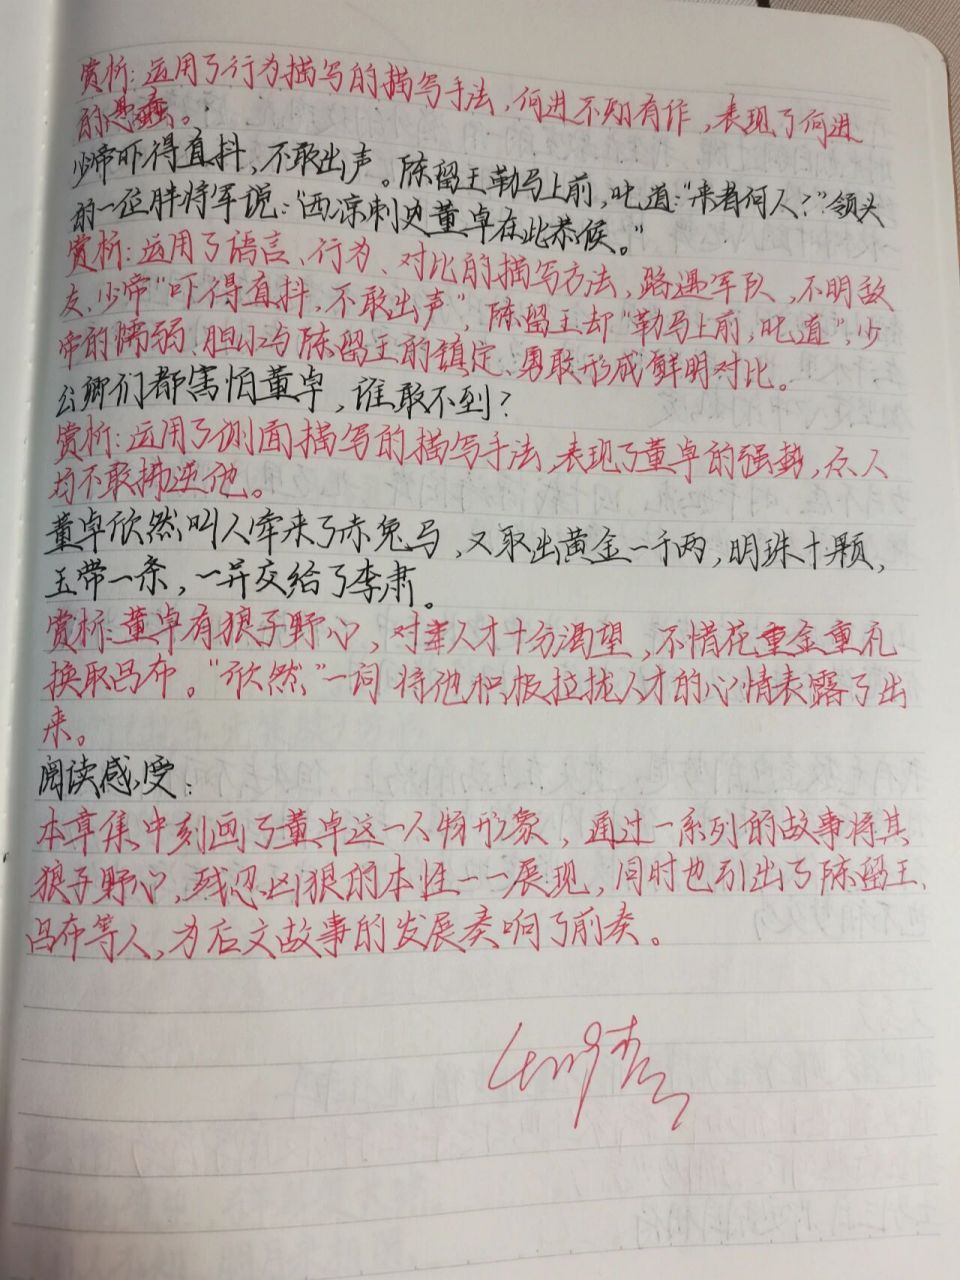 赏析：运用了行为描写的描写手法，何进不知有诈，表现了何进
的愚蠢。
少帝吓得直抖，不敢出声。陈留王勒马上前，叱道：“来者何人？”领头
的一位胖将军说：“西凉刺史董卓在此恭候。”
赏析：运用了语言、行为、对比的描写方法，路遇军队，不明敌
友，少帝“吓得直抖，不敢出声”，陈留王却“勒马上前，叱道”，少
帝的懦弱、胆小与陈留王的镇定、勇敢形成鲜明对比。
公卿们都害怕董卓，谁敢不到？
赏析：运用了侧面描写的描写手法，表现了董卓的强势，众人
均不敢拂逆他。
董卓欣然叫人牵来了赤兔马，又取出黄金一千两，明珠十颗，
玉带一条，一并交给了李肃。
赏析：董卓有狼子野心，对人才十分渴望，不惜花重金重礼
换取吕布。“欣然”一词将他积极拉拢人才的心情表露了出
来。
阅读感受：
本章集中刻画了董卓这一人物形象，通过一系列的故事将其
狼子野心，残忍凶狠的本性一一展现，同时也引出了陈留王、
吕布等人，为后文故事的发展奏响了前奏。